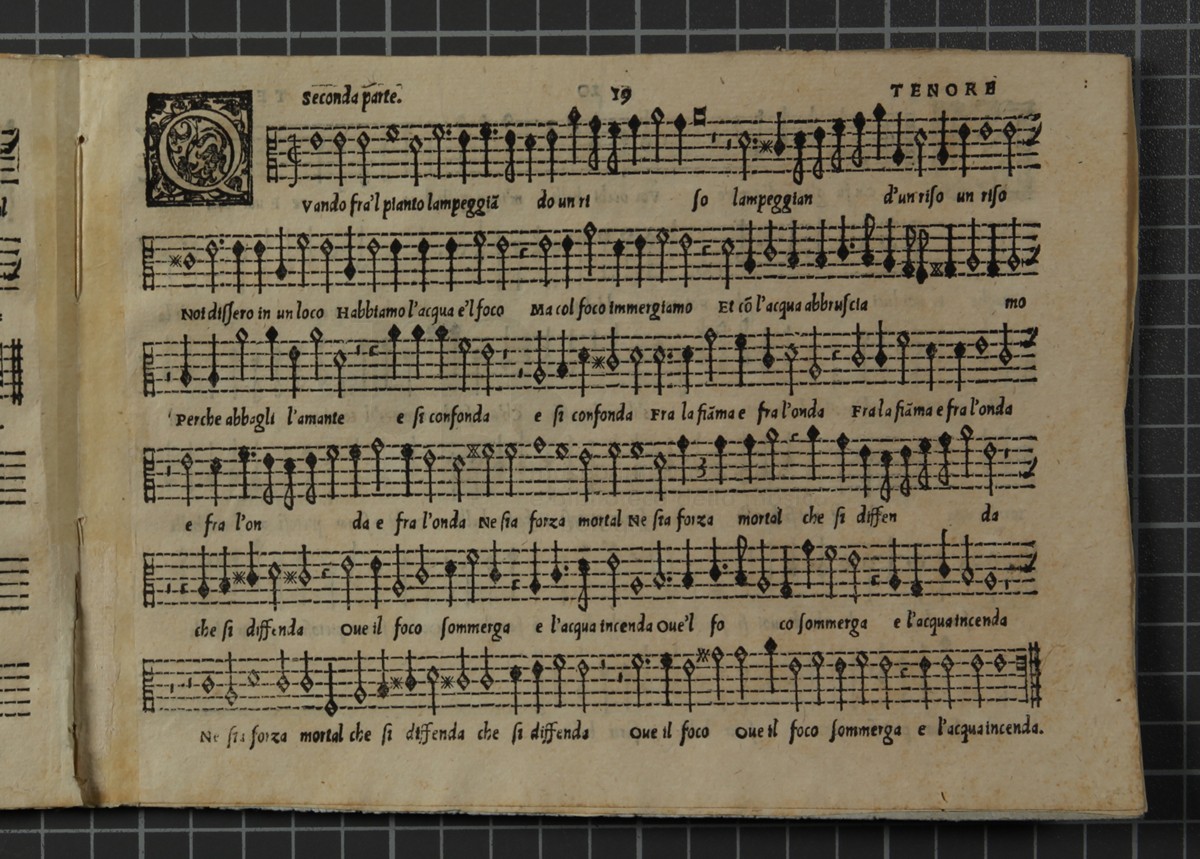 Seconda parte. 19 TENORE
QVando fra'l pianto lampeggiā do un ri so lampeggian d'un riso un riso
Noi dissero in un loco Habbiamo l'acqua e'l foco Ma col foco immergiamo Et cō l'acqua abbruscia mo
Perche abbagli l'amante e si confonda e si confonda Fra la fiāma e fra l'onda Fra la fiāma e fra l'onda
e fra l'on da e fra l'onda Ne sia forza mortal Ne sia forza mortal che si diffen da
che si diffenda Oue il foco sommerga e l'acqua incenda Oue'l fo co sommerga e l'acqua incenda
Ne sia forza mortal che si diffenda che si diffenda Oue il foco Oue il foco sommerga e l'acqua incenda.